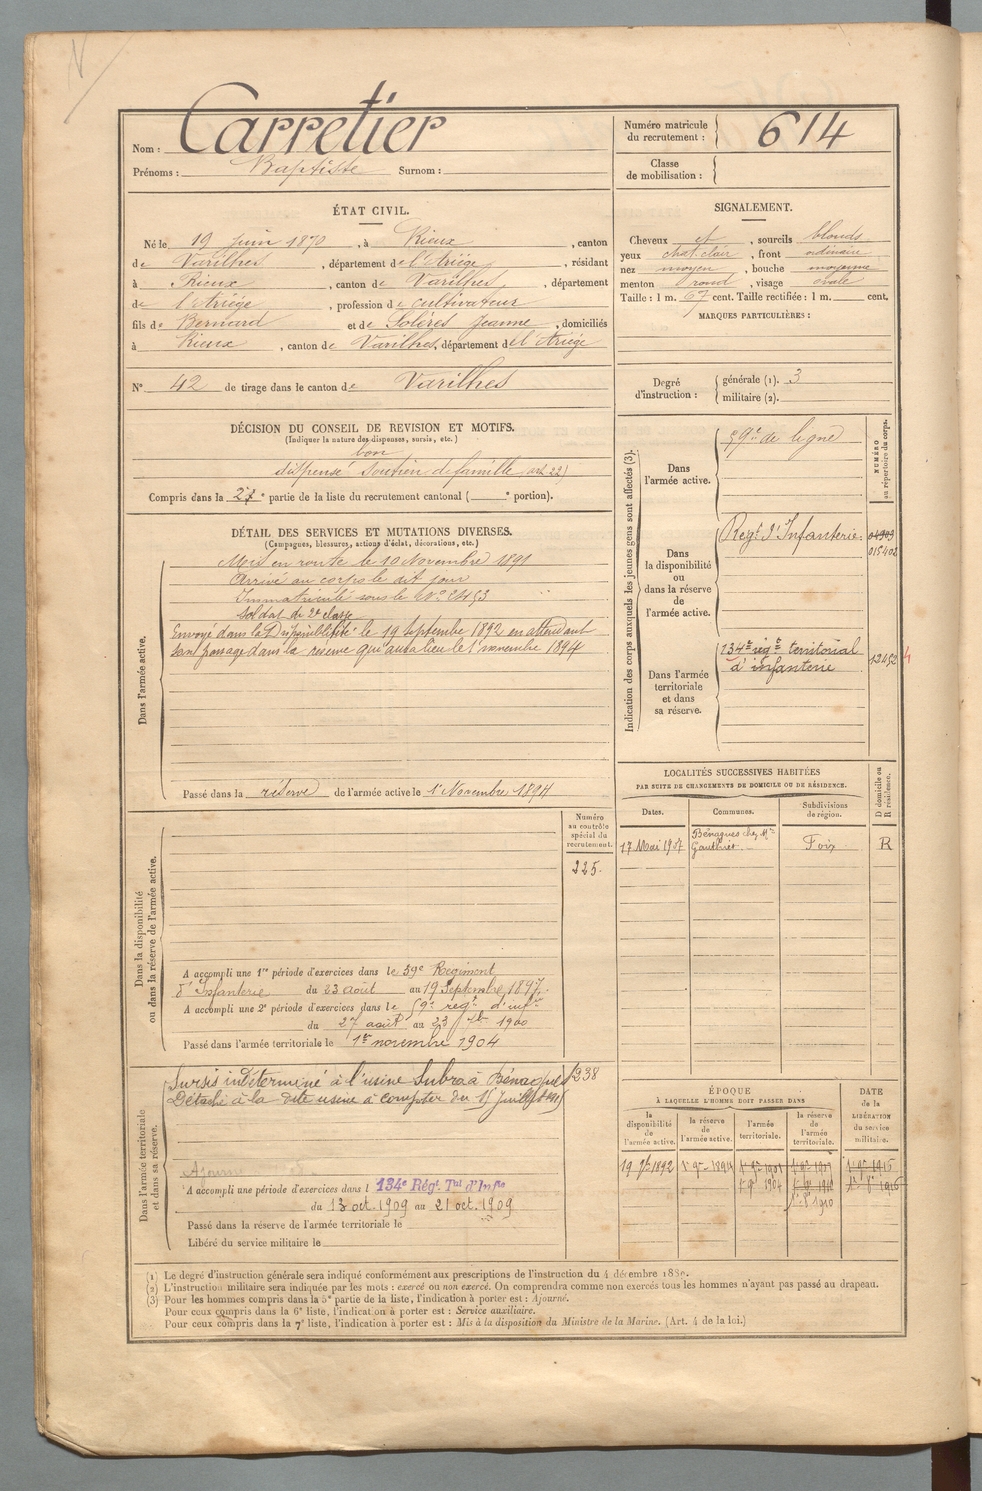 Nom : Carretier
Prénoms : Baptiste Surnom :
Numéro matricule du recrutement : 614
Classe de mobilisation :
ÉTAT CIVIL.
Né le 19 juin 1870, à Rieux, canton
de Varilhes, département de l'Ariège, résidant
à Rieux, canton de Varilhes, département
de l'Ariège, profession de cultivateur
fils de Bernard et de Solères Jeanne, domiciliés
à Rieux, canton de Varilhes, département de l'Ariège
N° 42 de tirage dans le canton de Varilhes
SIGNALEMENT.
Cheveux et, sourcils blonds
yeux chat. clair, front ordinaire
nez moyen, bouche moyenne
menton rond, visage ovale
Taille : 1 m. 67 cent. Taille rectifiée : 1 m. cent.
MARQUES PARTICULIÈRES :
Degré d'instruction : générale (1). 3
militaire (2).
DÉCISION DU CONSEIL DE REVISION ET MOTIFS.
(Indiquer la nature des dispenses, sursis, etc.)
bon
dispensé Soutien de famille art. 22)
Compris dans la 2e partie de la liste du recrutement cantonal ( e portion).
DÉTAIL DES SERVICES ET MUTATIONS DIVERSES.
(Campagnes, blessures, actions d'éclat, décorations, etc.)
Dans l'armée active.
Mis en route le 10 Novembre 1891
Arrivé au corps le dit jour
Immatriculé sous le N°
Soldat de 2e classe
Envoyé dans la Disponibilité le 19 Septembre 1892 en attendant
son passage dans la réserve qui aura lieu le 1er novembre 1894
Passé dans la réserve de l'armée active le 1er Novembre 1894
Indication des corps auxquels les jeunes gens sont affectés (3).
NUMÉRO au répertoire du corps.
Dans l'armée active.
59e de ligne
Dans la disponibilité ou dans la réserve de l'armée active.
Regt d'Infanterie
015402
Dans l'armée territoriale et dans sa réserve.
134e régt territorial
d'infanterie
12452
LOCALITÉS SUCCESSIVES HABITÉES
PAR SUITE DE CHANGEMENTS DE DOMICILE OU DE RÉSIDENCE.
D domicile ou R résidence.
Dates. Communes. Subdivisions de région.
17 Mai 1907 Bénagues chez Mr Gauthier Foix R
Dans la disponibilité ou dans la réserve de l'armée active.
Numéro au contrôle spécial du recrutement.
225
A accompli une 1re période d'exercices dans le 59e Regiment
d'Infanterie du 23 août au 19 Septembre 1897.
A accompli une 2e période d'exercices dans le 59e regt d'infie
du 27 août au 23 7bre 1900
Passé dans l'armée territoriale le 1er novembre 1904
Dans l'armée territoriale et dans sa réserve.
Sursis indéterminé à l'usine Subra à Bénagues
238
Détaché à la dite usine à compter du 15 Juillet
A accompli une période d'exercices dans l 134e Régt Tal d'Infie
du 13 oct. 1909 au 21 oct. 1909
Passé dans la réserve de l'armée territoriale le
Libéré du service militaire le
ÉPOQUE
À LAQUELLE L'HOMME DOIT PASSER DANS
DATE de la LIBÉRATION du service militaire.
la disponibilité de l'armée active. la réserve de l'armée active. l'armée territoriale. la réserve de l'armée territoriale.
19 7bre 1892 1er 9bre 1894 1er 9bre 1904
1er 8bre 1910
(1) Le degré d'instruction générale sera indiqué conformément aux prescriptions de l'instruction du 4 décembre 1889.
(2) L'instruction militaire sera indiquée par les mots : exercé ou non exercé. On comprendra comme non exercés tous les hommes n'ayant pas passé au drapeau.
(3) Pour les hommes compris dans la 5e partie de la liste, l'indication à porter est : Ajourné.
Pour ceux compris dans la 6e liste, l'indication à porter est : Service auxiliaire.
Pour ceux compris dans la 7e liste, l'indication à porter est : Mis à la disposition du Ministre de la Marine. (Art. 4 de la loi.)